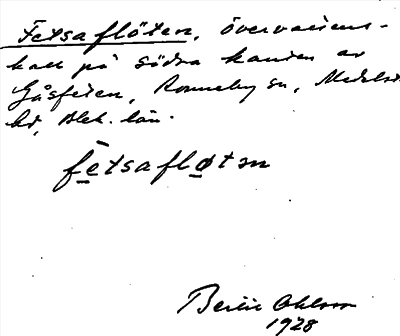 Fetsaflöten, övervattens-
kall på södra kanten av
Gåsfeten, Ronneby sn, Medelst
hd, Blek. län.
fetsafløtən
Ohlsson
1928